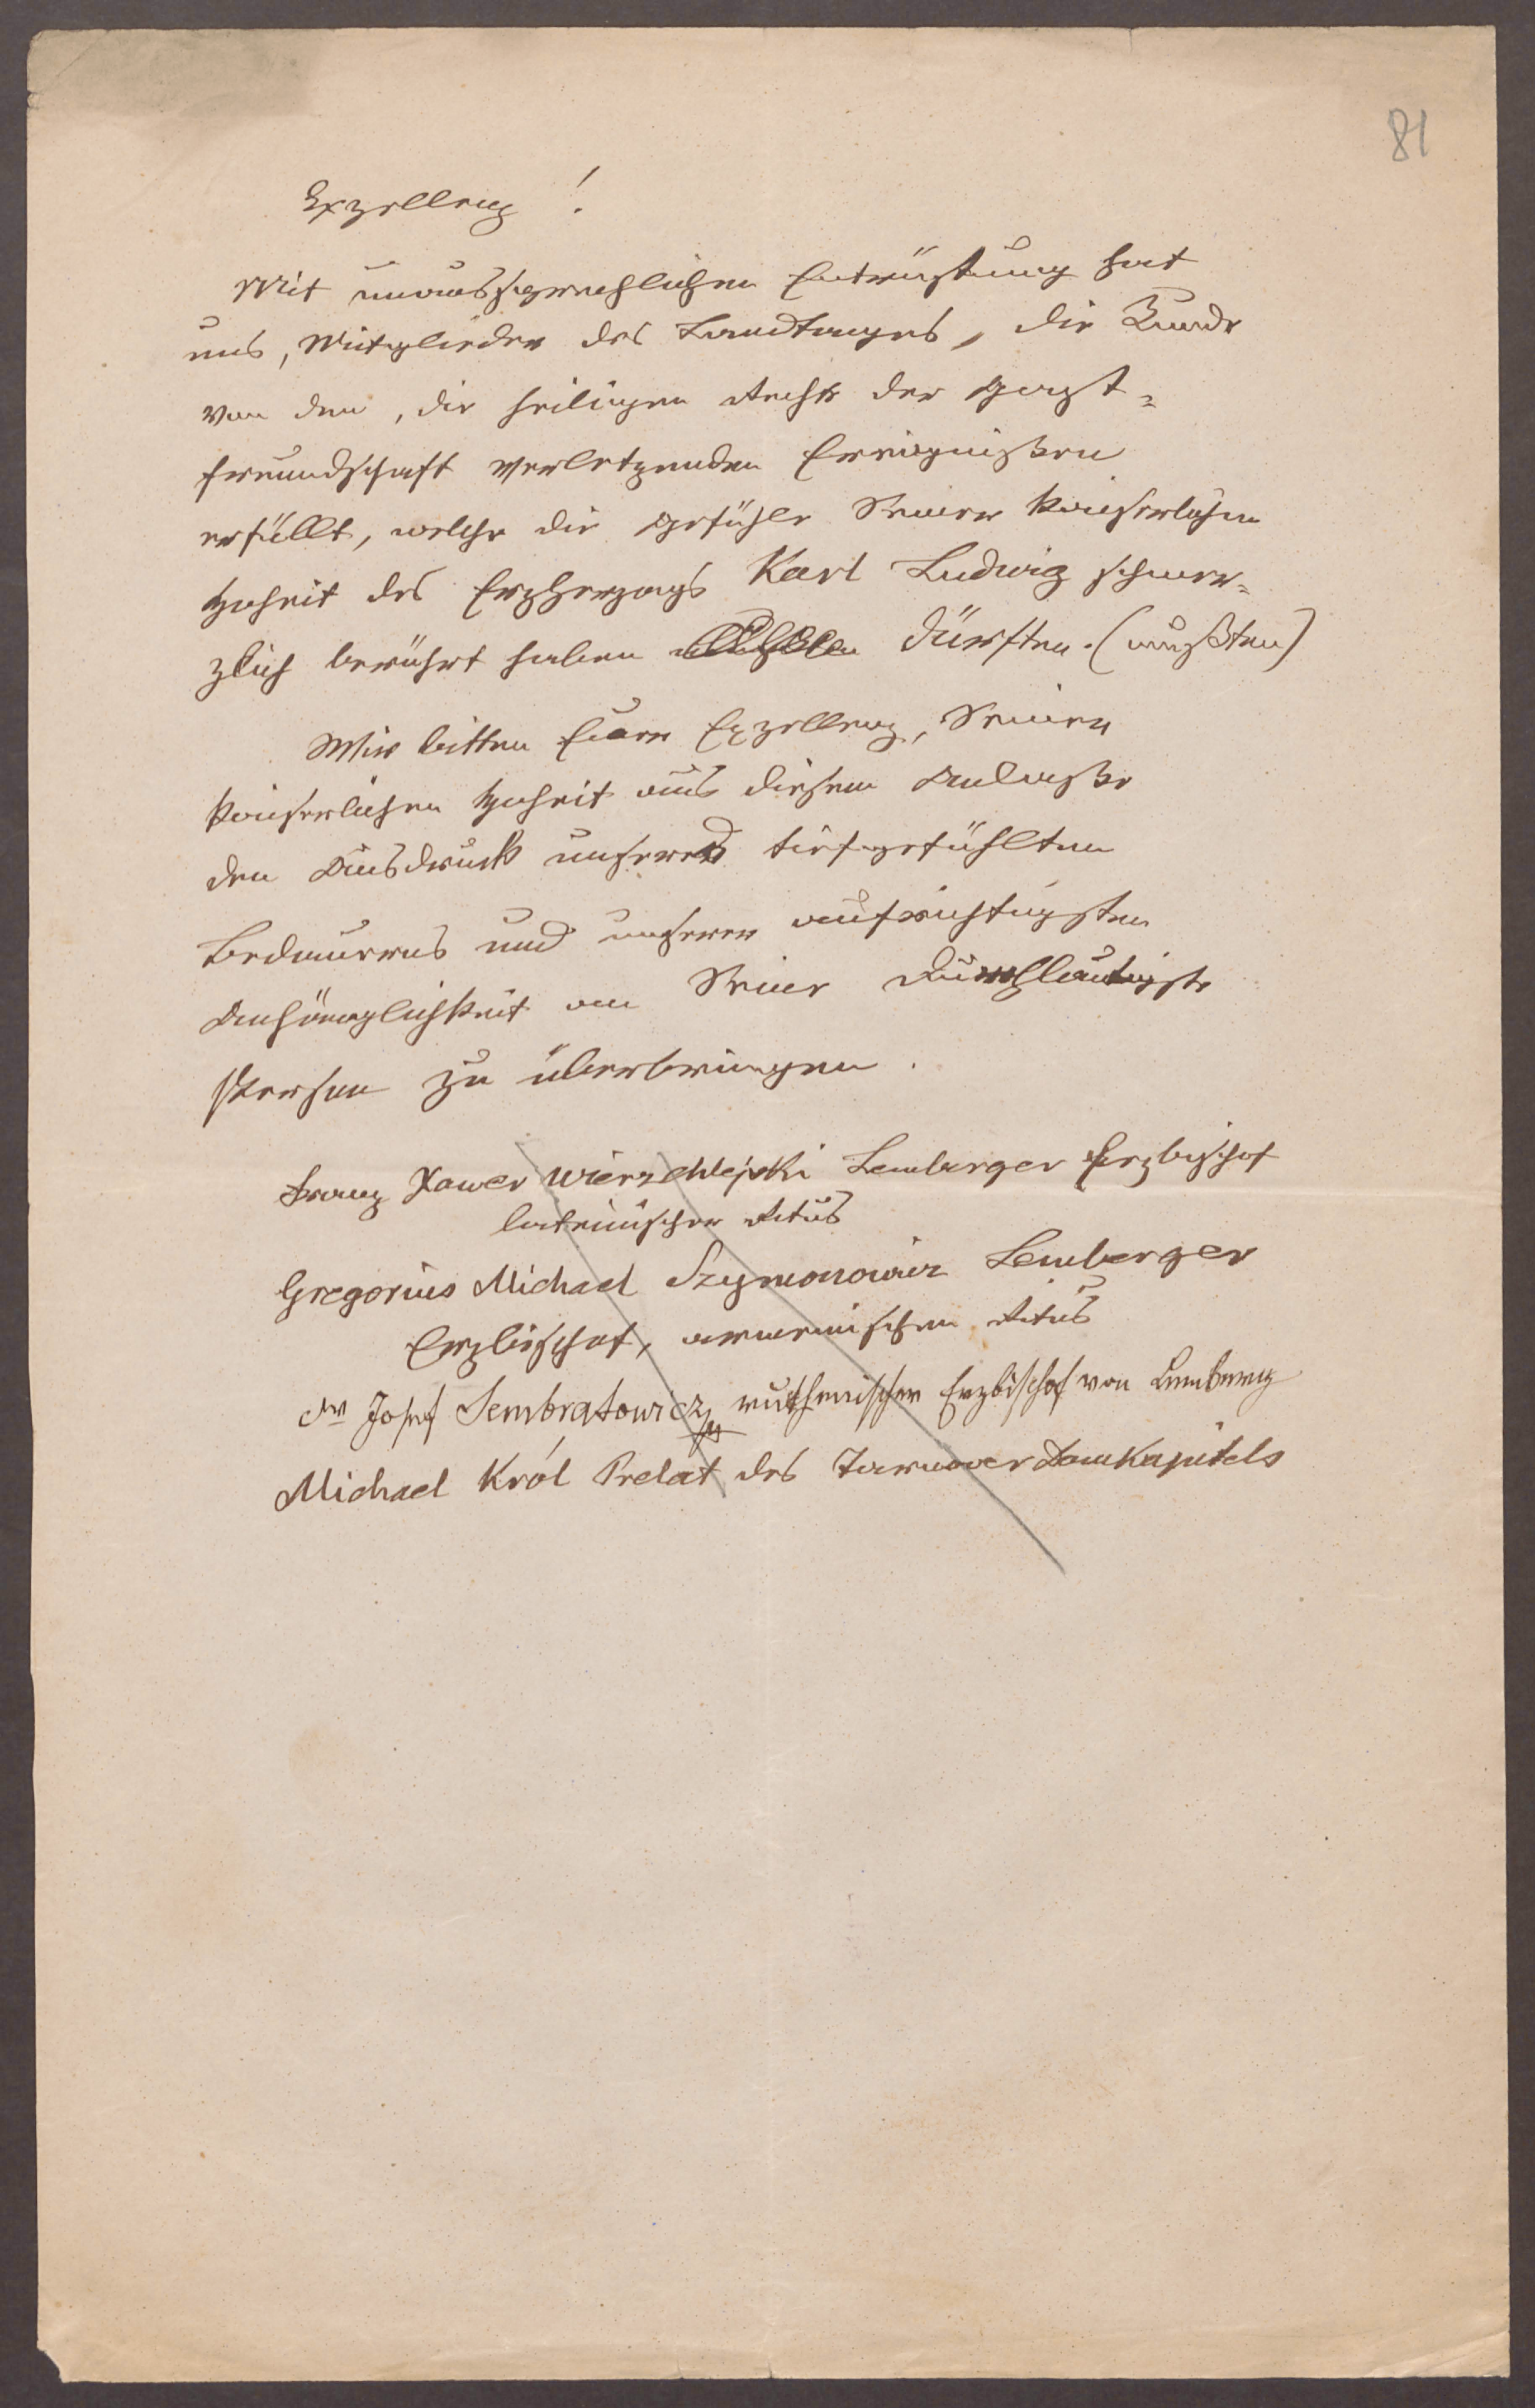 81
Exzellenz!
Mit unaussprechlichen Entrüstung hat
uns, Mitglieder des Landtages, die Kunde
von den, die heiligen Rechte der Gast-
freundschaft verletzenden Ereignißen
erfüllt, welche die Gefühle Seiner Kaiserlichen
Hoheit des Erzherzogs Karl Ludwig schmer-
zlich berührt haben dürften. (mußten)
Wir bitten Euere Exzellenz, Seiner
Kaiserlichen Hoheit aus diesem Anlaße
den Ausdruck unseres tiefgefühlten
Bedauerns und unserer aufrichtigsten
Anhänglichkeit an Seine Durchlautigste
Person zu überbringen.
Franz Xawer Wierzchlejski Lemberger Erzbischof
lateinischer Ritus
Gregorius Michael Szymonowicz Lemberger
Erzbischof, armenischen Ritus
Dr Josef Sembratowicz ruthenischer Erzbischof von Lemberg
Michael Król Prelat des Tarnower Domkapitels